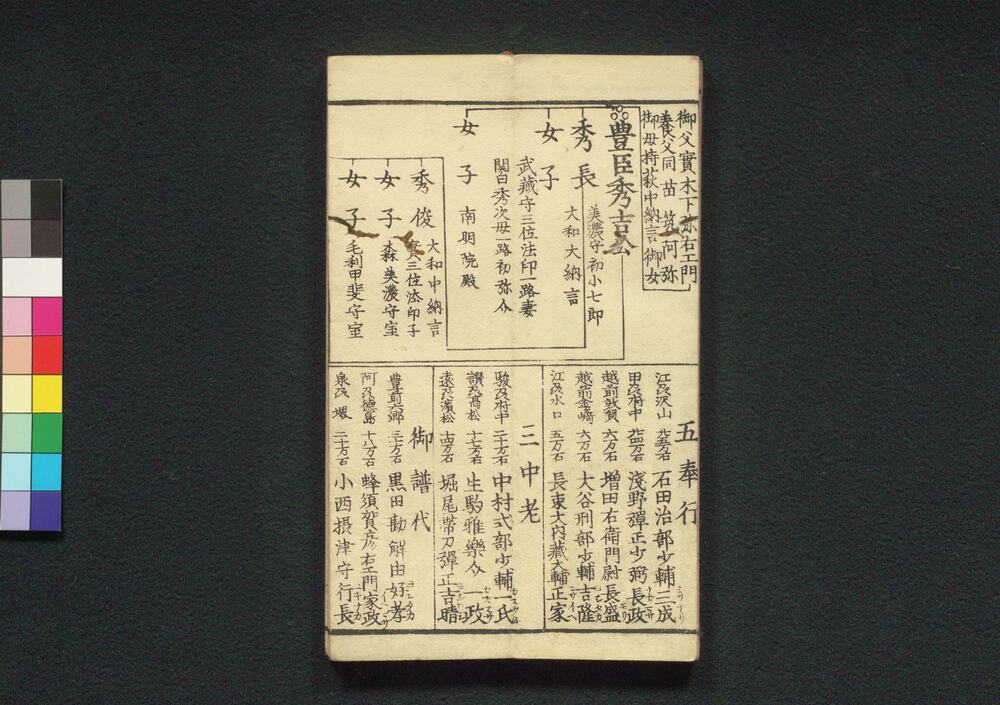 御父實木下弥右エ門
養父同苗筑阿弥
御母持萩中納言御女
豊臣秀吉公
秀長
美濃守初小七郎
大和大納言
女子
武藏守三位法印一路妻
関白秀次母一路初弥介
女子
南明院殿
秀俊
大和中納言
實三位法印子
女子
森美濃守室
女子
毛利甲斐守室
五奉行
江刕沢山 石田治部少輔三成
甲刕府中 浅野彈正少弼長政
越前敦賀 六万石 増田右衛門尉長盛
越前金﨑 六万石 大谷刑部少輔吉隆
江刕水口 五万石 長束大内藏大輔正家
三中老
駿刕府中 二十万石 中村式部少輔一氏
讃刕高松 十七万石 生駒雅樂介一政
遠刕濱松 十四万石 堀尾帯刀彈正吉晴
御譜代
豊前六郷 三十万石 黒田勘解由好孝
阿刕徳島 十八万石 蜂須賀彦右エ門家政
泉刕堺 二十万石 小西摂津守行長